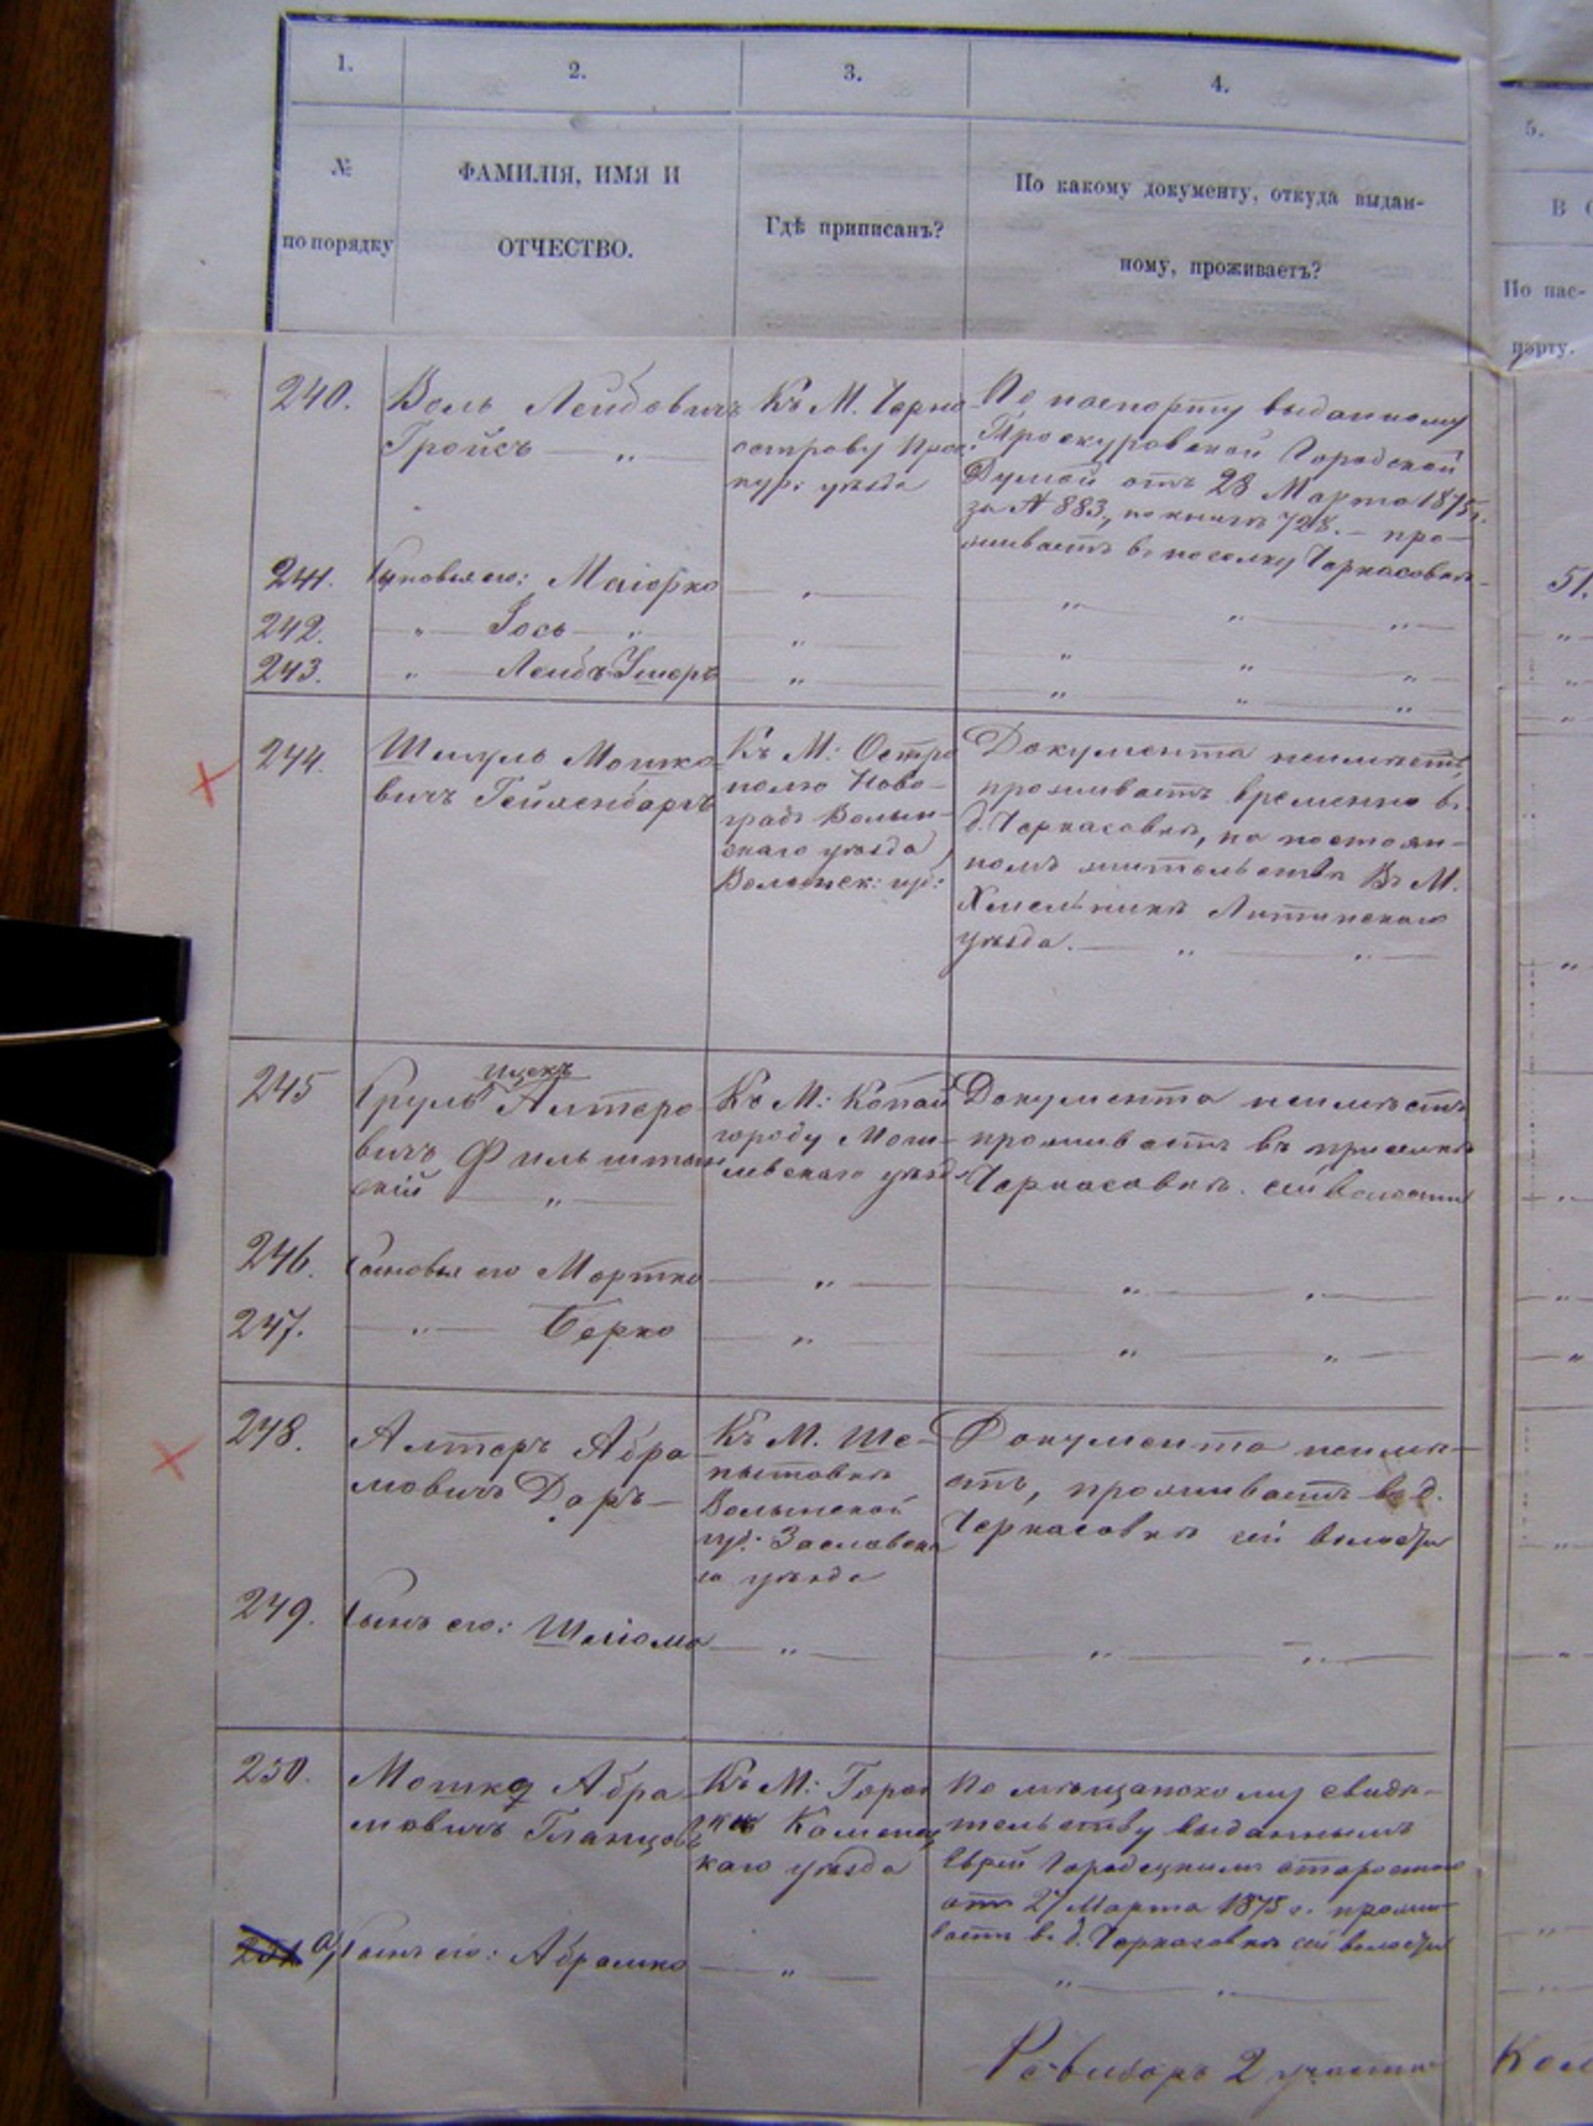 1. 2. 3. 4. 5.
№ по порядку
ФАМИЛІЯ, ИМЯ И
ОТЧЕСТВО.
Гдѣ приписанъ?
По какому документу, откуда выдан-
ному, проживаетъ?
В
По пас-
порту.
240.
Воль Лейбовичъ
Гройсъ — „ —
Къ М. Черно
острову Прос
кур: уѣзда
По паспорту выданному
Проскуровской Городской
Думой отъ 28 Марта 1875 г.
за № 883, по книгѣ 728. — про-
живаетъ въ поселку Черкасовкѣ
241. Сыновья его: Маіорко — „ — „ „ „ 51.
242. „ Іось „ — „ — „ „ „
243. „ Лейбъ Ушеръ — „ — „ „ „
244.
Шмуль Мошко-
вичъ Гейленбаргъ
Къ М: Остро
полю Ново-
градъ Волын-
скаго уѣзда,
Волынск: губ:
Документа неимѣетъ,
проживаетъ временно въ
д. Черкасовкѣ, но постоян-
номъ жительствѣ въ М.
Хмельникѣ Литинскаго
уѣзда. — „ — „ —
245
ицекъ
Сруль Алтеро
вичъ Фильштын
скій — „ —
Къ М: Копай
городу Моги-
левскаго уѣзда
Документа неимѣетъ
проживаетъ въ приселкѣ
Черкасовкѣ сей волости
246. Сыновья его Мортко — „ — „ — „ —
247. — „ — Берко — „ — „ — „ —
248.
Алтеръ Абра
мовичъ Даръ —
Къ М. Ше-
петовкѣ
Волынской
губ: Заславска
го уѣзда
Документа неимѣ-
етъ, проживаетъ въ д.
Черкасовкѣ сей волости
249. Сынъ его: Шліома — „ — „ — „ —
250.
Мошко Абра
мовичъ Гланцовъ
Къ М: Город
кѣ Каменец
каго уѣзда
По мѣщанскому свидѣ-
тельству выданнымъ
Еврей Городецкимъ старостою
отъ 27 Марта 1875 г. прожи-
ваетъ въ д. Черкасовкѣ сей волости
251 а) Сынъ его: Абрамко — „ — „ — „ —
Ревизоръ 2 участка